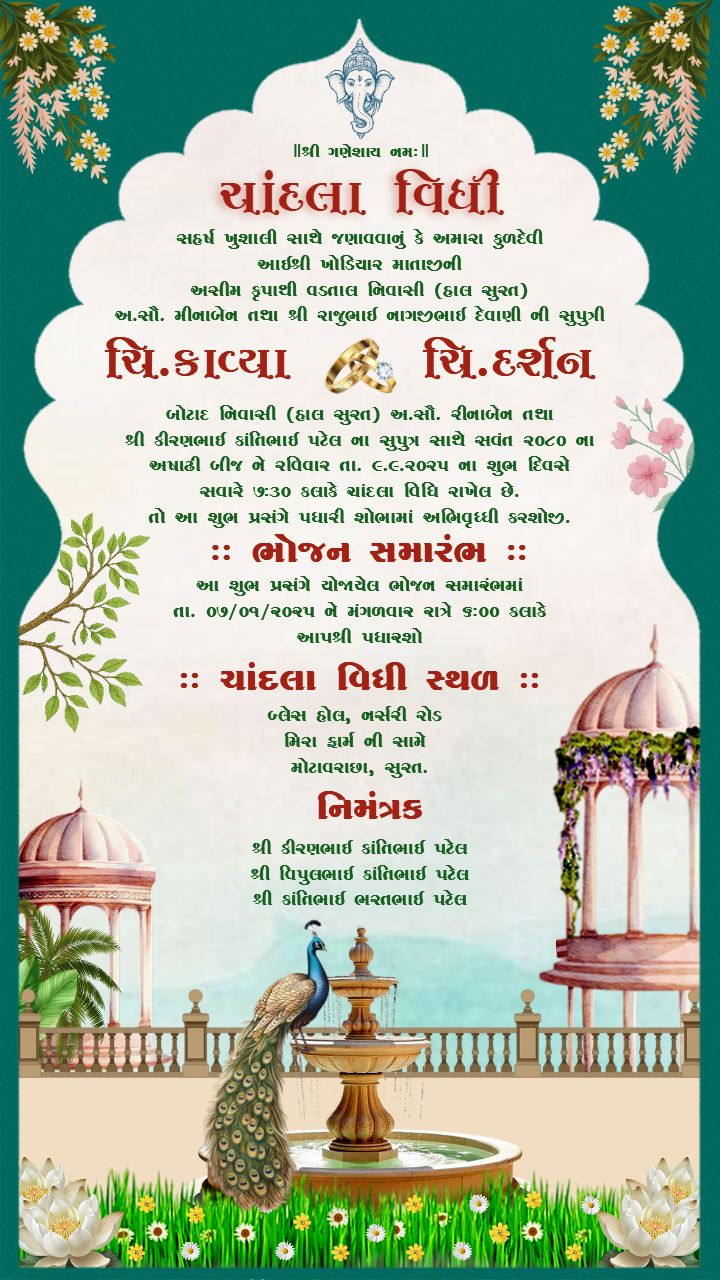 ॥શ્રી ગણેશાય નમઃ॥
ચાંદલા વિધી
સહર્ષ ખુશાલી સાથે જણાવવાનું કે અમારા કુળદેવી
આઈશ્રી ખોડિયાર માતાજીની
અસીમ કૃપાથી વડતાલ નિવાસી (હાલ સુરત)
અ.સૌ. મીનાબેન તથા શ્રી રાજુભાઈ નાગજીભાઈ દેવાણી ની સુપુત્રી
ચિ.કાવ્યા ચિ.દર્શન
બોટાદ નિવાસી (હાલ સુરત) અ.સૌ. રીનાબેન તથા
શ્રી કીરણભાઈ કાંતિભાઈ પટેલ ના સુપુત્ર સાથે સવંત ૨૦૮૦ ના
અષાઢી બીજ ને રવિવાર તા. ૯.૯.૨૦૨૫ ના શુભ દિવસે
સવારે ૭:૩૦ કલાકે ચાંદલા વિધિ રાખેલ છે.
તો આ શુભ પ્રસંગે પધારી શોભામાં અભિવૃધ્ધી કરશોજી.
:: ભોજન સમારંભ ::
આ શુભ પ્રસંગે યોજાયેલ ભોજન સમારંભમાં
તા. ૦૭/૦૧/૨૦૨૫ ને મંગળવાર રાત્રે ૬:૦૦ કલાકે
આપશ્રી પધારશો
:: ચાંદલા વિધી સ્થળ ::
બ્લેસ હોલ, નર્સરી રોડ
મિરા ફાર્મ ની સામે
મોટાવરાછા, સુરત.
નિમંત્રક
શ્રી કીરણભાઈ કાંતિભાઈ પટેલ
શ્રી વિપુલભાઈ કાંતિભાઈ પટેલ
શ્રી કાંતિભાઈ ભરતભાઈ પટેલ